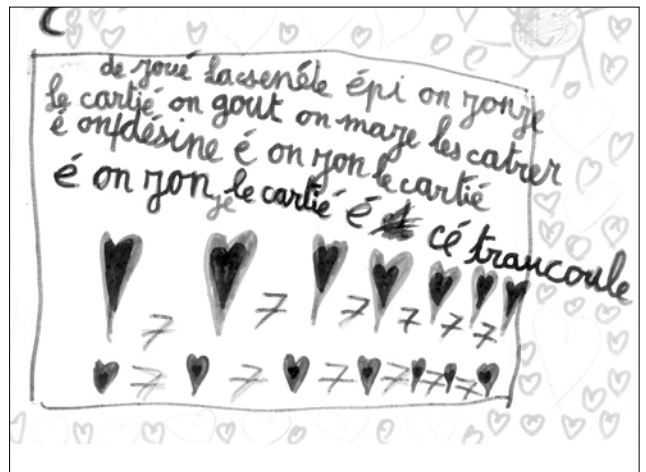 de joué lacsenéle épi on ronje
le cartié on gout on maje les catrer
é on désine é on ron le cartié
é on ron je le cartié é cé trancoule
7 7 7 7 7 7
7 7 7 7 7 7